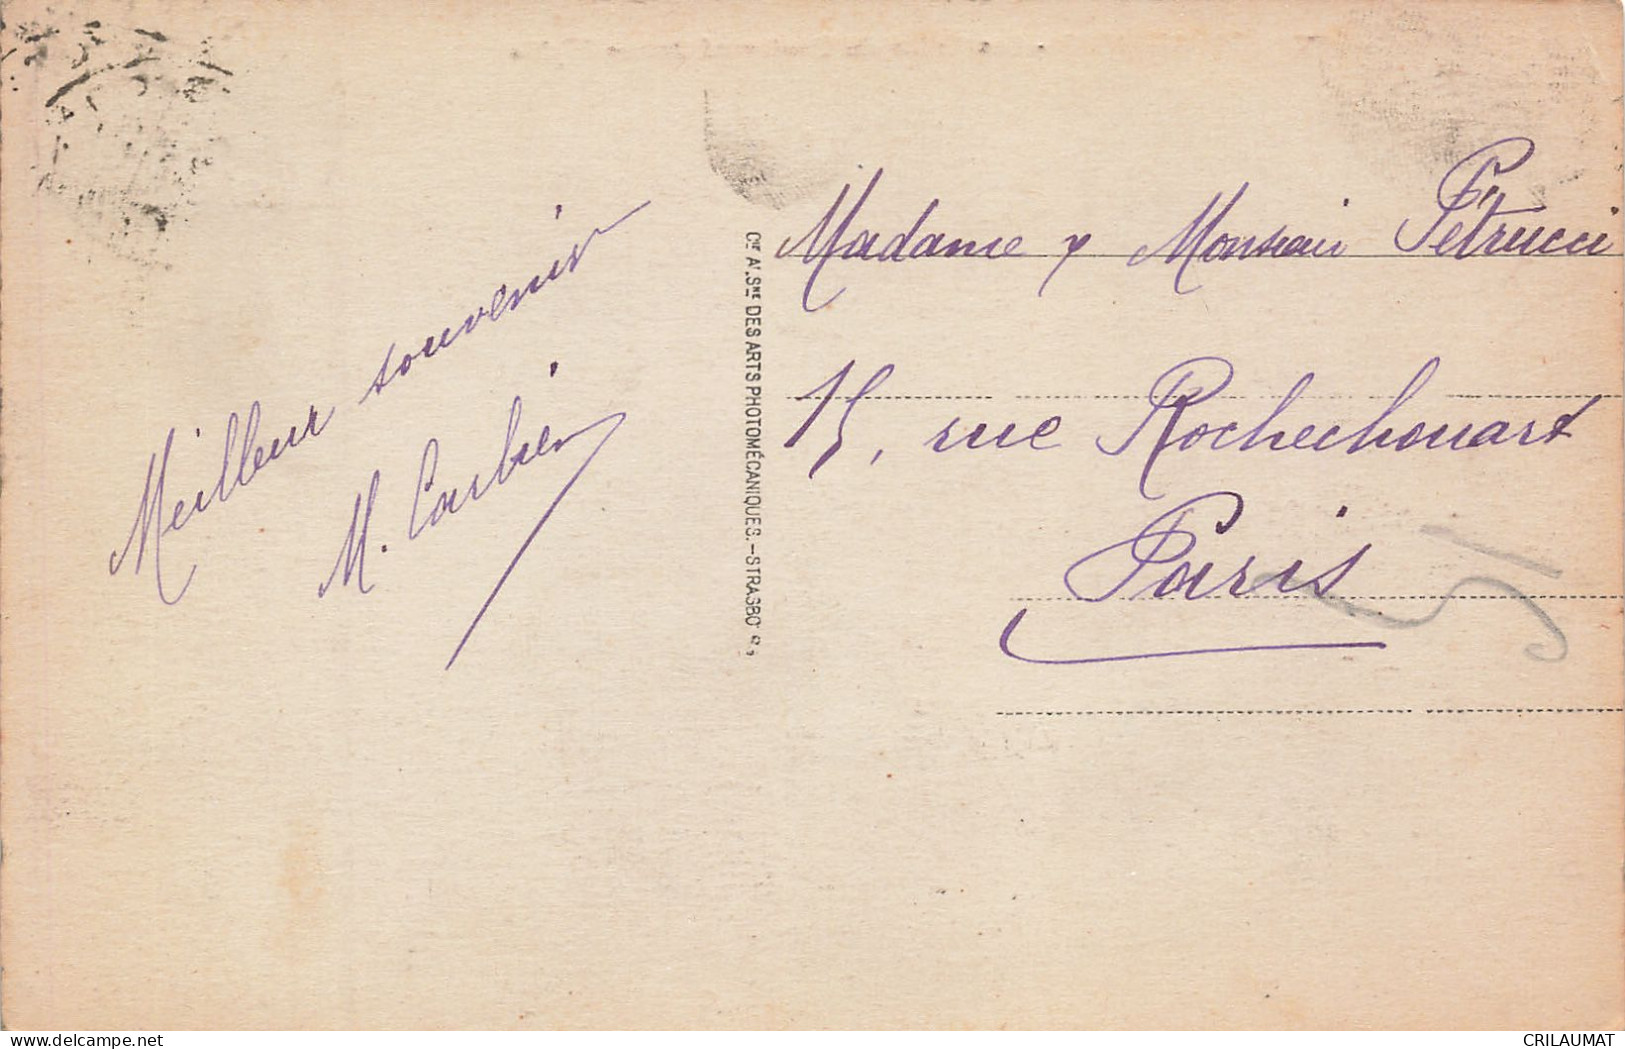 Meilleur souvenir
M. Carlien
Cie Als.ne DES ARTS PHOTOMÉCANIQUES.—STRASBO
Madame & Monsieur Pétrucci
15, rue Rochechouart
Paris
delcampe.net
CRILAUMAT